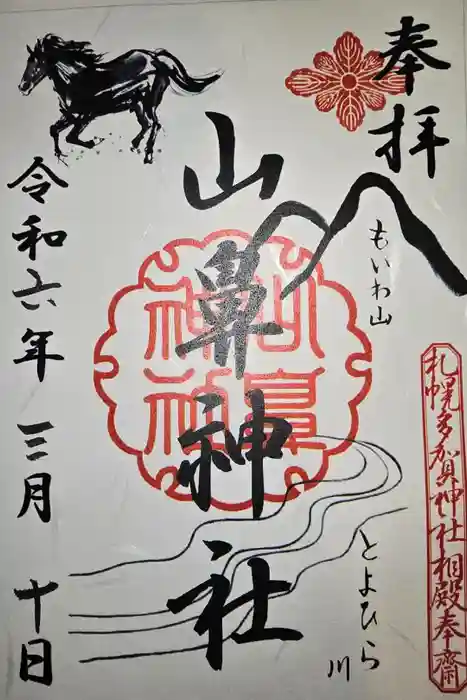 奉拝
もいわ山
札幌多賀神社相殿奉斎
山鼻神社
山鼻神社
とよひら川
令和六年 三月 十日